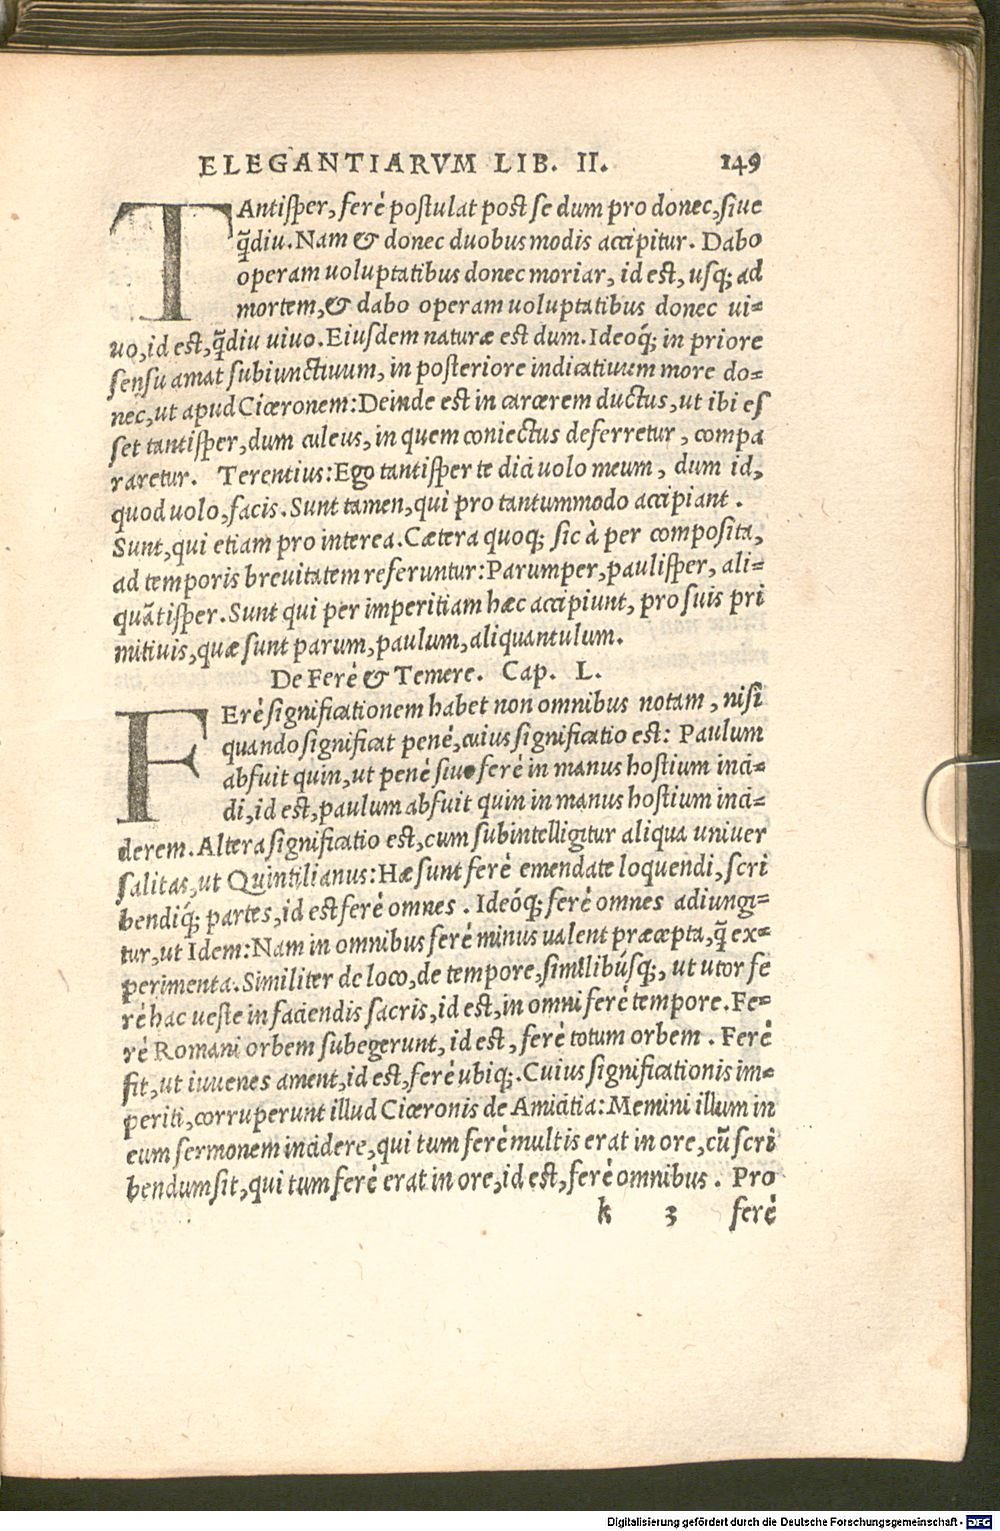 ELEGANTIARVM LIB. II. 149
TAntisper, ferè postulat post se dum pro donec, siue
q̃diu. Nam & donec duobus modis accipitur. Dabo
operam uoluptatibus donec moriar, id est, usq; ad
mortem, & dabo operam uoluptatibus donec ui=
uo, id est, q̃diu uiuo. Eiusdem naturæ est dum. Ideoq́; in priore
sensu amat subiunctiuum, in posteriore indicatiuum more do=
nec, ut apud Ciceronem: Deinde est in carcerem ductus, ut ibi es
set tantisper, dum culeus, in quem coniectus deferretur, compa
raretur. Terentius: Ego tantisper te dici uolo meum, dum id,
quod uolo, facis. Sunt tamen, qui pro tantummodo accipiant.
Sunt, qui etiam pro interea. Cætera quoq; sic à per composita,
ad temporis breuitatem referuntur: Parumper, paulisper, ali=
quãtisper. Sunt qui per imperitiam hæc accipiunt, pro suis pri
mitiuis, quæ sunt parum, paulum, aliquantulum.
De Ferè & Temere. Cap. L.
FErè significationem habet non omnibus notam, nisi
quando significat penè, cuius significatio est: Paulum
abfuit quin, ut penè siue ferè in manus hostium inci=
di, id est, paulum abfuit quin in manus hostium inci=
derem. Altera significatio est, cum subintelligitur aliqua uniuer
salitas, ut Quintilianus: Hæ sunt ferè emendate loquendi, scri
bendiq́; partes, id est ferè omnes. Ideóq; ferè omnes adiungi=
tur, ut Idem: Nam in omnibus ferè minus ualent præcepta, q̃ ex=
perimenta. Similiter de loco, de tempore, similibúsq;, ut utor fe
rè hac ueste in faciendis sacris, id est, in omni ferè tempore. Fe=
rè Romani orbem subegerunt, id est, ferè totum orbem. Ferè
fit, ut iuuenes ament, id est, ferè ubiq;. Cuius significationis im=
periti, corruperunt illud Ciceronis de Amicitia: Memini illum in
eum sermonem incidere, qui tum ferè multis erat in ore, cũ scri
bendum sit, qui tum ferè erat in ore, id est, ferè omnibus. Pro
k 3 ferè
Digitalisierung gefördert durch die Deutsche Forschungsgemeinschaft - DFG